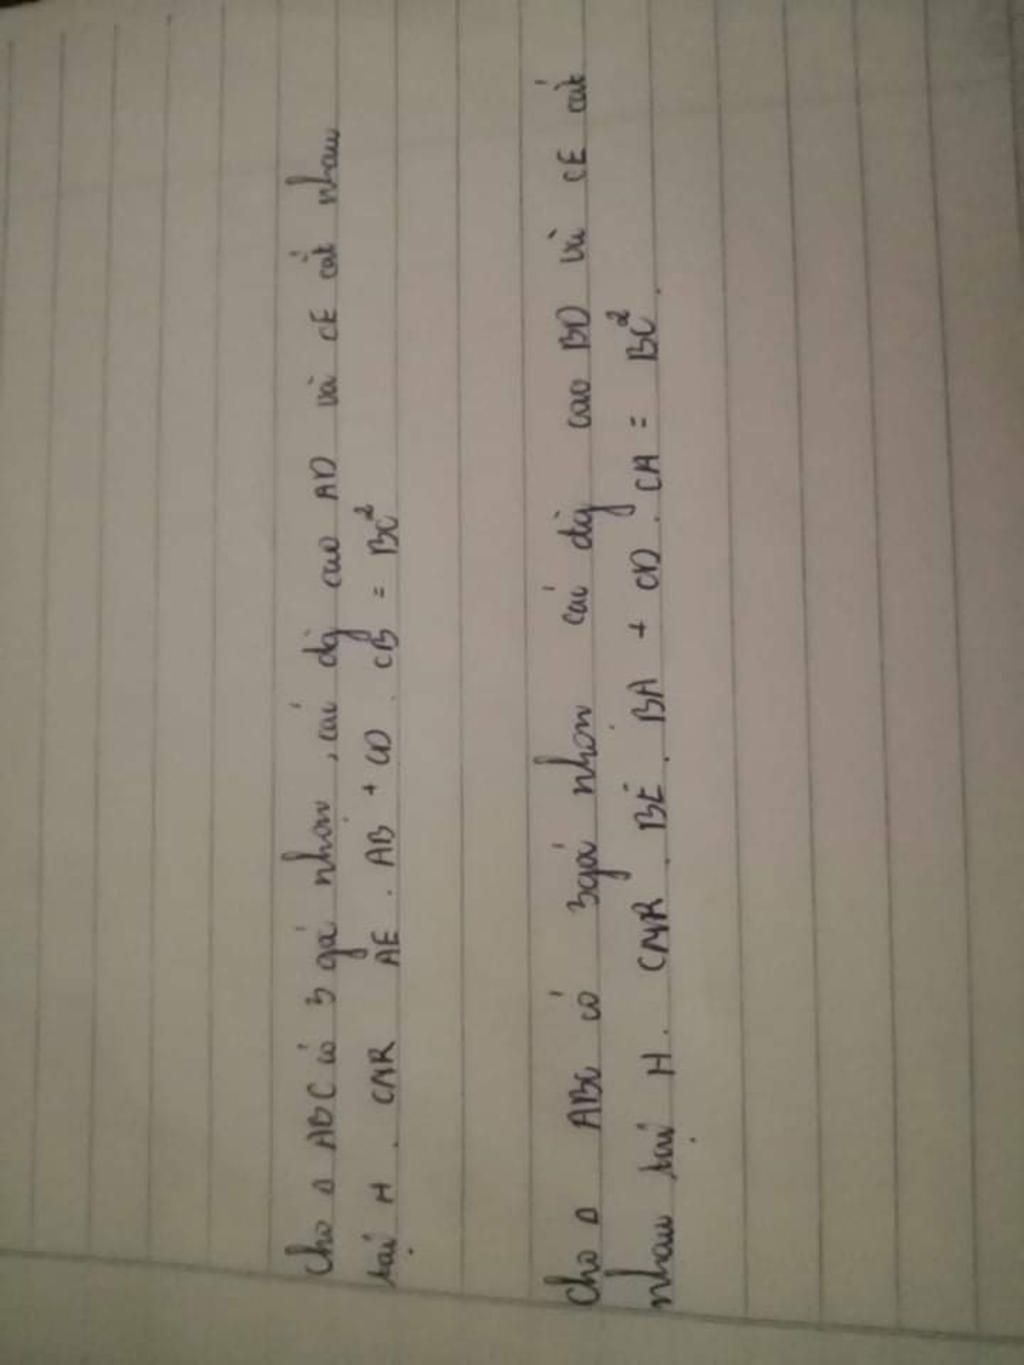 Cho Δ ABC có 3 gá nhọn, các đg cao AD và CE cắt nhau
tại H. CMR AE. AB + CD. CB = BC²
Cho Δ ABC có 3gá nhọn các đg cao BD và CE cắt
nhau tại H. CMR BE. BA + CD. CA = BC².